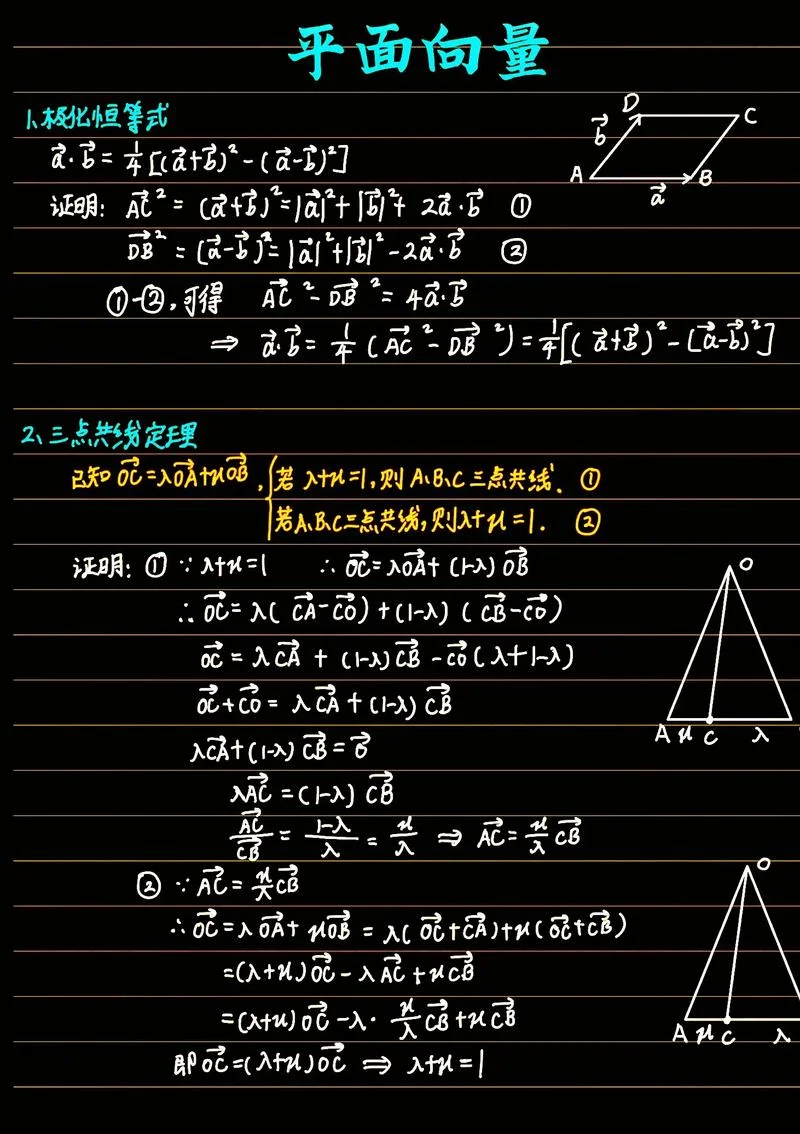 平面向量
1、极化恒等式
a⃗·b⃗=1/4[(a⃗+b⃗)²-(a⃗-b⃗)²]
D
C
b⃗
A
B
a⃗
证明: AC⃗²=(a⃗+b⃗)²=|a⃗|²+|b⃗|²+2a⃗·b⃗ ①
DB⃗²=(a⃗-b⃗)²=|a⃗|²+|b⃗|²-2a⃗·b⃗ ②
①-②,可得 AC⃗²-DB⃗²=4a⃗·b⃗
⇒ a⃗·b⃗=1/4(AC⃗²-DB⃗²)=1/4[(a⃗+b⃗)²-(a⃗-b⃗)²]
2、三点共线定理
已知OC⃗=λOA⃗+μOB⃗, {若λ+μ=1,则A、B、C三点共线. ①
若A、B、C三点共线,则λ+μ=1. ②
证明: ① ∵λ+μ=1 ∴OC⃗=λOA⃗+(1-λ)OB⃗
∴OC⃗=λ(CA⃗-CO⃗)+(1-λ)(CB⃗-CO⃗)
OC⃗=λCA⃗+(1-λ)CB⃗-CO⃗(λ+1-λ)
OC⃗+CO⃗=λCA⃗+(1-λ)CB⃗
λCA⃗+(1-λ)CB⃗=0⃗
λAC⃗=(1-λ)CB⃗
AC⃗/CB⃗=(1-λ)/λ=μ/λ ⇒ AC⃗=μ/λ CB⃗
O
A μ C λ
② ∵AC⃗=μ/λ CB⃗
∴OC⃗=λOA⃗+μOB⃗=λ(OC⃗+CA⃗)+μ(OC⃗+CB⃗)
=(λ+μ)OC⃗-λAC⃗+μCB⃗
=(λ+μ)OC⃗-λ·μ/λ CB⃗+μCB⃗
即OC⃗=(λ+μ)OC⃗ ⇒ λ+μ=1
O
A μ C λ